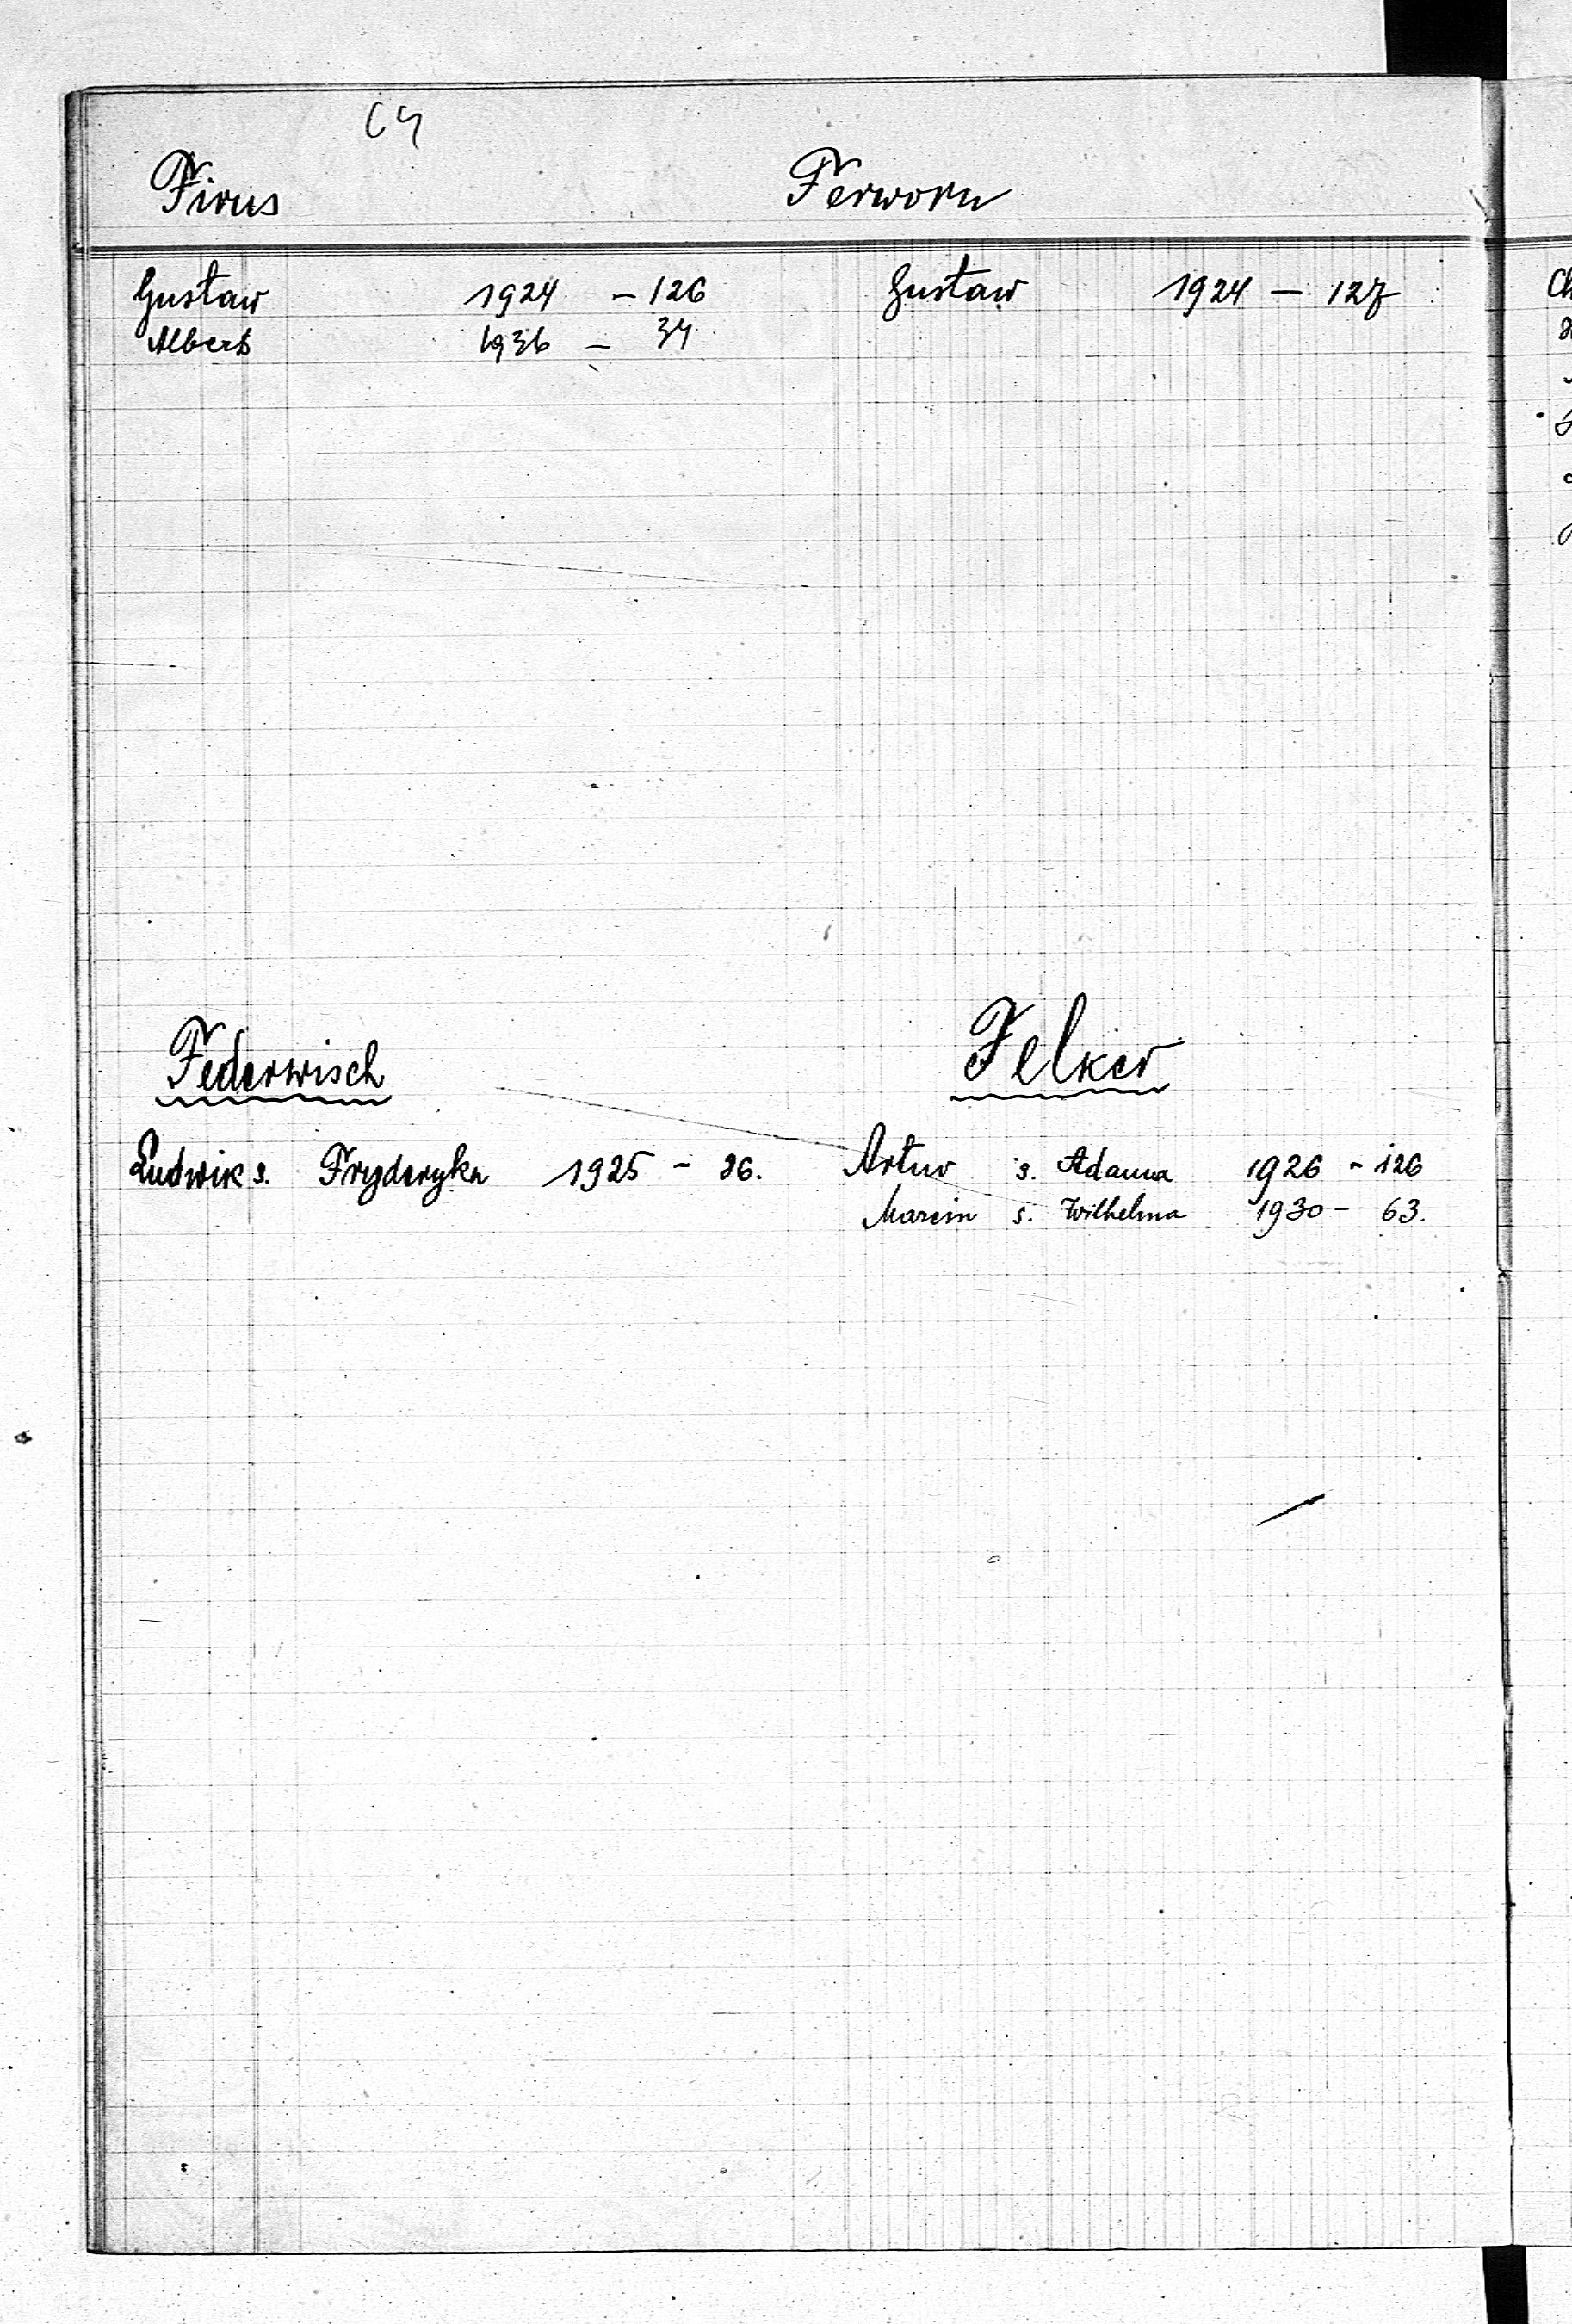 64
Firus
Gustaw 1924 - 126
Albert 1936 - 34
Ferworn
Gustaw 1924 - 127
Federwisch
Ludwik s. Fryderyka 1925 - 86.
Felker
Artur s. Adama 1926 - 126
Marcin s. Wilhelma 1930 - 63.